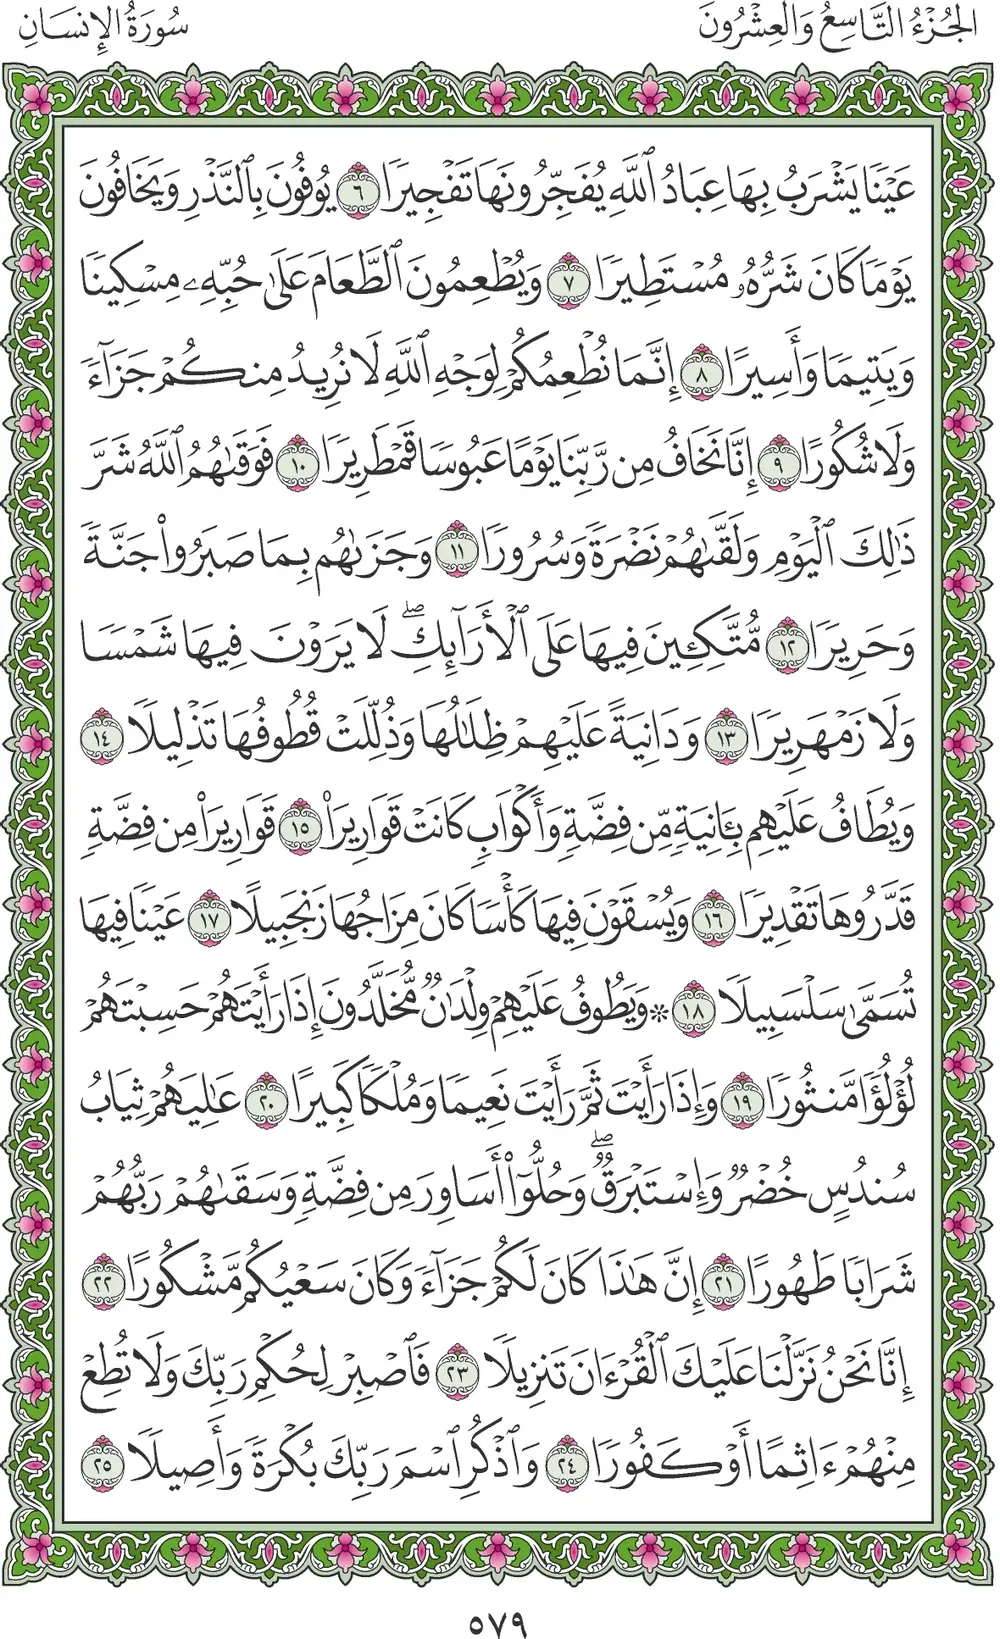 الجُزْءُ التَّاسِعُ وَالعِشْرُونَ
سُورَةُ الإِنسَانِ
عَيْنًا يَشْرَبُ بِهَا عِبَادُ ٱللَّهِ يُفَجِّرُونَهَا تَفْجِيرًا ٦ يُوفُونَ بِٱلنَّذْرِ وَيَخَافُونَ
يَوْمًا كَانَ شَرُّهُۥ مُسْتَطِيرًا ٧ وَيُطْعِمُونَ ٱلطَّعَامَ عَلَىٰ حُبِّهِۦ مِسْكِينًا
وَيَتِيمًا وَأَسِيرًا ٨ إِنَّمَا نُطْعِمُكُمْ لِوَجْهِ ٱللَّهِ لَا نُرِيدُ مِنكُمْ جَزَآءً
وَلَا شُكُورًا ٩ إِنَّا نَخَافُ مِن رَّبِّنَا يَوْمًا عَبُوسًا قَمْطَرِيرًا ١٠ فَوَقَىٰهُمُ ٱللَّهُ شَرَّ
ذَٰلِكَ ٱلْيَوْمِ وَلَقَّىٰهُمْ نَضْرَةً وَسُرُورًا ١١ وَجَزَىٰهُم بِمَا صَبَرُوا۟ جَنَّةً
وَحَرِيرًا ١٢ مُّتَّكِـِٔينَ فِيهَا عَلَى ٱلْأَرَآئِكِ ۖ لَا يَرَوْنَ فِيهَا شَمْسًا
وَلَا زَمْهَرِيرًا ١٣ وَدَانِيَةً عَلَيْهِمْ ظِلَٰلُهَا وَذُلِّلَتْ قُطُوفُهَا تَذْلِيلًا ١٤
وَيُطَافُ عَلَيْهِم بِـَٔانِيَةٍ مِّن فِضَّةٍ وَأَكْوَابٍ كَانَتْ قَوَارِيرَا۠ ١٥ قَوَارِيرَا۟ مِن فِضَّةٍ
قَدَّرُوهَا تَقْدِيرًا ١٦ وَيُسْقَوْنَ فِيهَا كَأْسًا كَانَ مِزَاجُهَا زَنجَبِيلًا ١٧ عَيْنًا فِيهَا
تُسَمَّىٰ سَلْسَبِيلًا ١٨ ۞ وَيَطُوفُ عَلَيْهِمْ وِلْدَٰنٌ مُّخَلَّدُونَ إِذَا رَأَيْتَهُمْ حَسِبْتَهُمْ
لُؤْلُؤًا مَّنثُورًا ١٩ وَإِذَا رَأَيْتَ ثَمَّ رَأَيْتَ نَعِيمًا وَمُلْكًا كَبِيرًا ٢٠ عَٰلِيَهُمْ ثِيَابُ
سُندُسٍ خُضْرٌ وَإِسْتَبْرَقٌ ۖ وَحُلُّوٓا۟ أَسَاوِرَ مِن فِضَّةٍ وَسَقَىٰهُمْ رَبُّهُمْ
شَرَابًا طَهُورًا ٢١ إِنَّ هَٰذَا كَانَ لَكُمْ جَزَآءً وَكَانَ سَعْيُكُم مَّشْكُورًا ٢٢
إِنَّا نَحْنُ نَزَّلْنَا عَلَيْكَ ٱلْقُرْءَانَ تَنزِيلًا ٢٣ فَٱصْبِرْ لِحُكْمِ رَبِّكَ وَلَا تُطِعْ
مِنْهُمْ ءَاثِمًا أَوْ كَفُورًا ٢٤ وَٱذْكُرِ ٱسْمَ رَبِّكَ بُكْرَةً وَأَصِيلًا ٢٥
٥٧٩